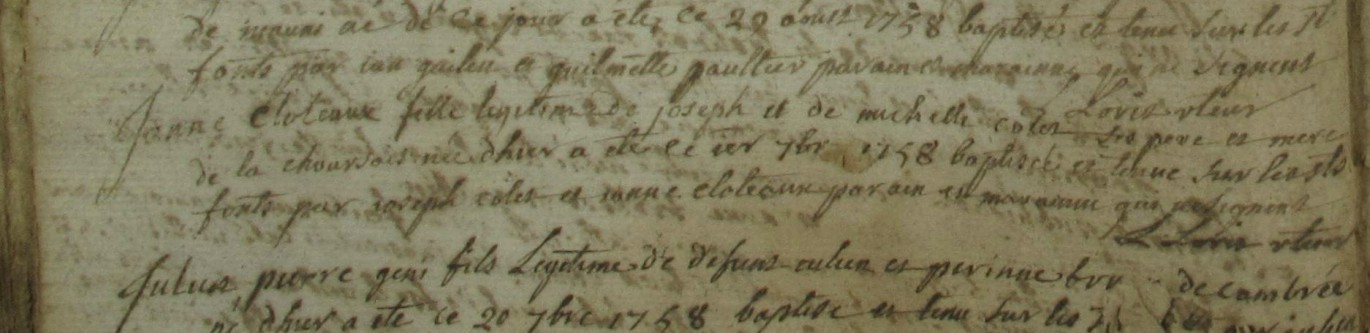 de ce jour a ete ce 20 aoust 1758 baptisé et tenu sur les st
fonts par et guilmelle paultier parain et maraine qui ne signent
Loris rteur
Janne cloteaux fille legitime de joseph et de michelle colet ses pere et mere
de la née dhier a ete ce ier 7bre 1758 baptisée et tenue sur les sts
fonts par ioseph colet et ianne cloteaux parain et maraine qui ne signent
Loris rteur
Julien pierre fils Legitime de defunt iulien et perinne de combrée
né dhier a ete ce 20 7bre 1758 baptise et tenu sur les